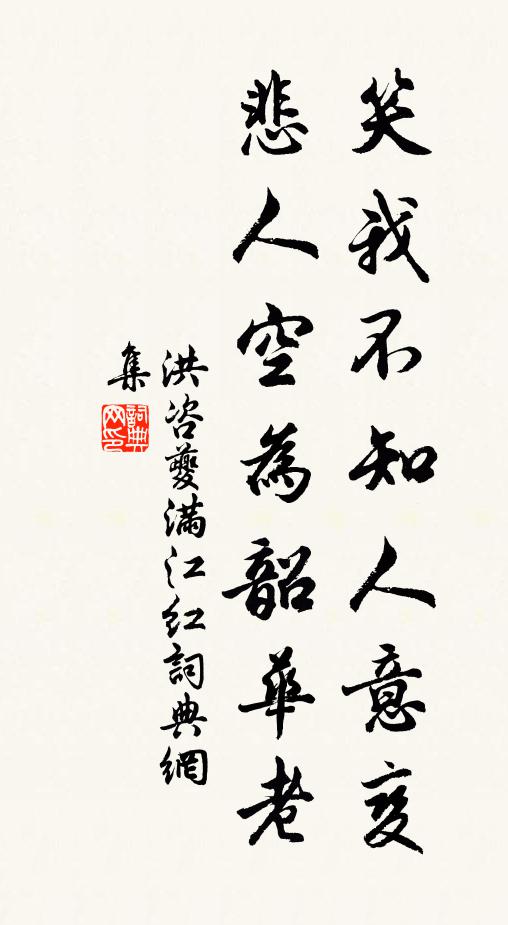 笑我不知人意变
悲人空為韶華老
洪咨夔滿江紅詞典網
集
詞典网印